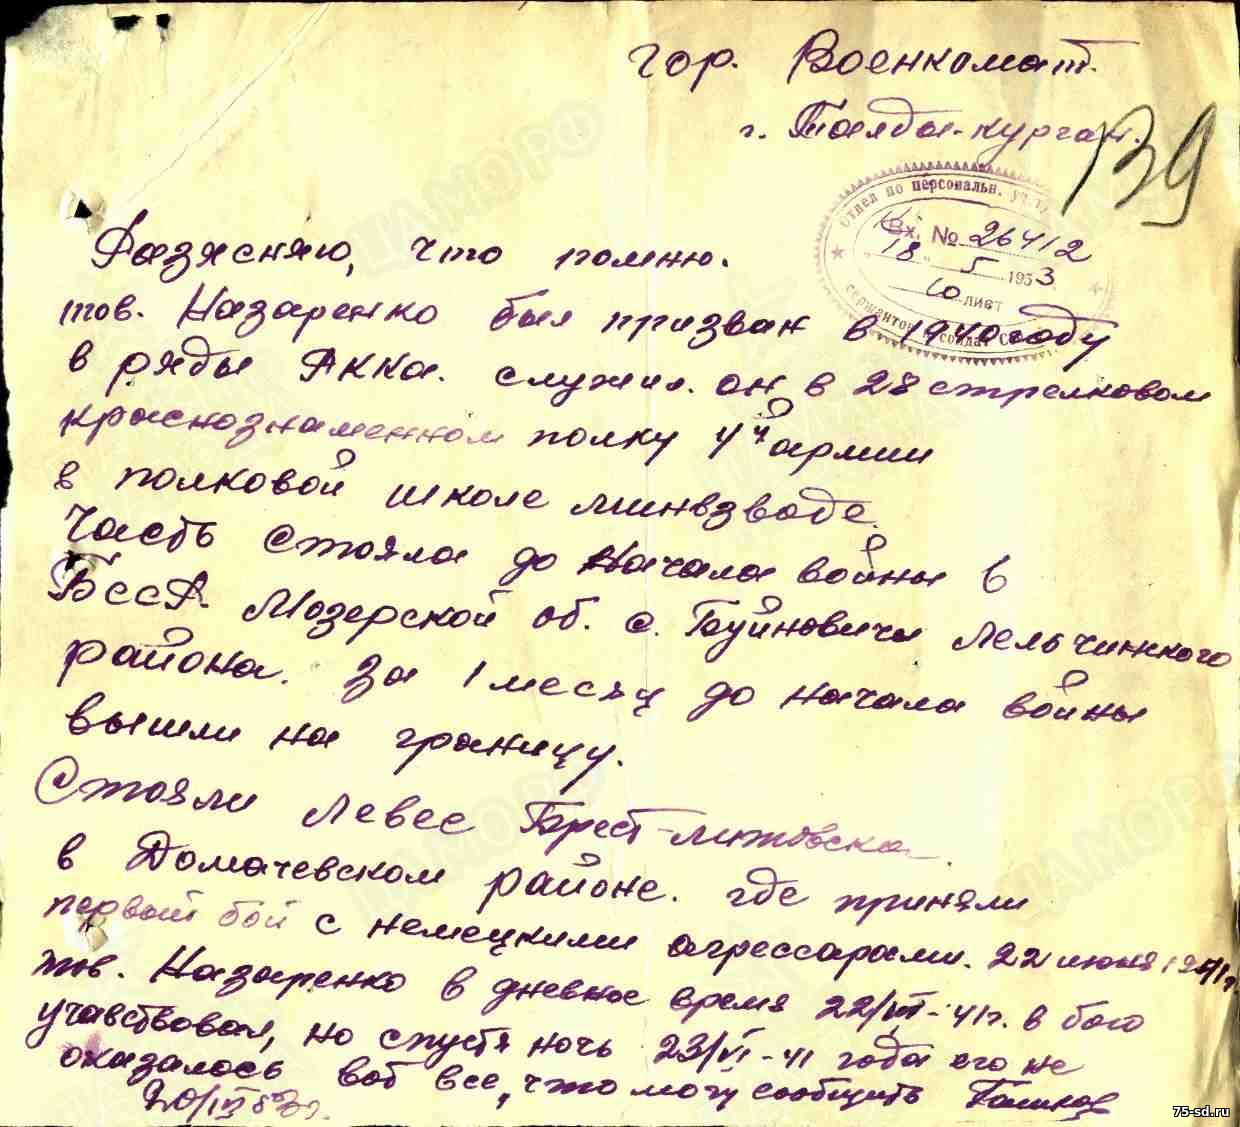 гор. Военкомат.
г. Талды-курган.
139
Отдел по персональн. уч.
Вх. № 26412
"18" 5 1953.
10 лист
сержантов и солдат С
Разясняю, что помню.
тов. Назаренко был призван в 1940 году
в ряды РККА. служил. он в 28 стрелковом
краснознаменном полку 4й армии
в полковой школе минвзводе.
Часть стояла до начала войны в
БССР. Мозерской об. с. Буйновичи Лельчинского
района. За 1 месяц до начала войны
вышли на границу.
Стояли левее Брест-литовска.
в Домачевском районе. где приняли
первый бой с немецкими агрессарами. 22 июня 1941г.
тов. Назаренко в дневное время 22/VI-41г. в бою
учавствовал, но спустя ночь 23/VI-41 года его не
оказалось вот все, что могу сообщить
75-sd.ru
ЦАМО.РФ